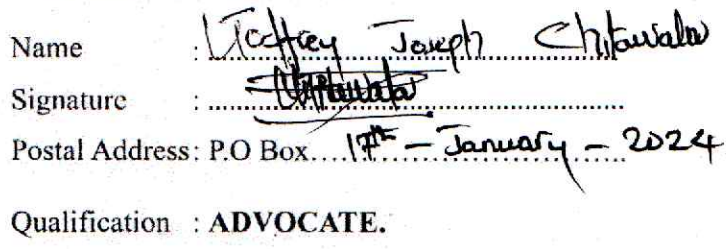 Name : Geoffrey Joseph Chitawala
Signature :
Postal Address : P.O Box.... 17th - January - 2024
Qualification : ADVOCATE.